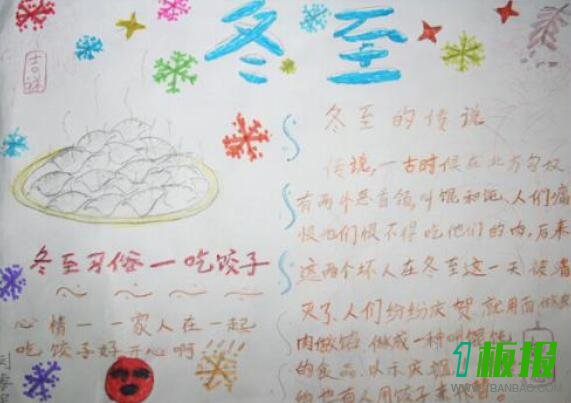 冬至
吉祥
冬至的传说
传说,一古时候在北方匈奴
有两个恶首领,叫馄和饨、人们痛
恨他们恨不得吃他们的肉,后来
这两个坏人在冬至这一天被消
灭了,人们纷纷庆贺,就用面做皮
肉做馅,做成一种叫馄饨
的食品,以示庆
也有人用饺子来
冬至习俗一吃饺子
心情一一家人在一起
吃饺子好开心啊!!!!
1板报
WWW.1BANBAO.COM